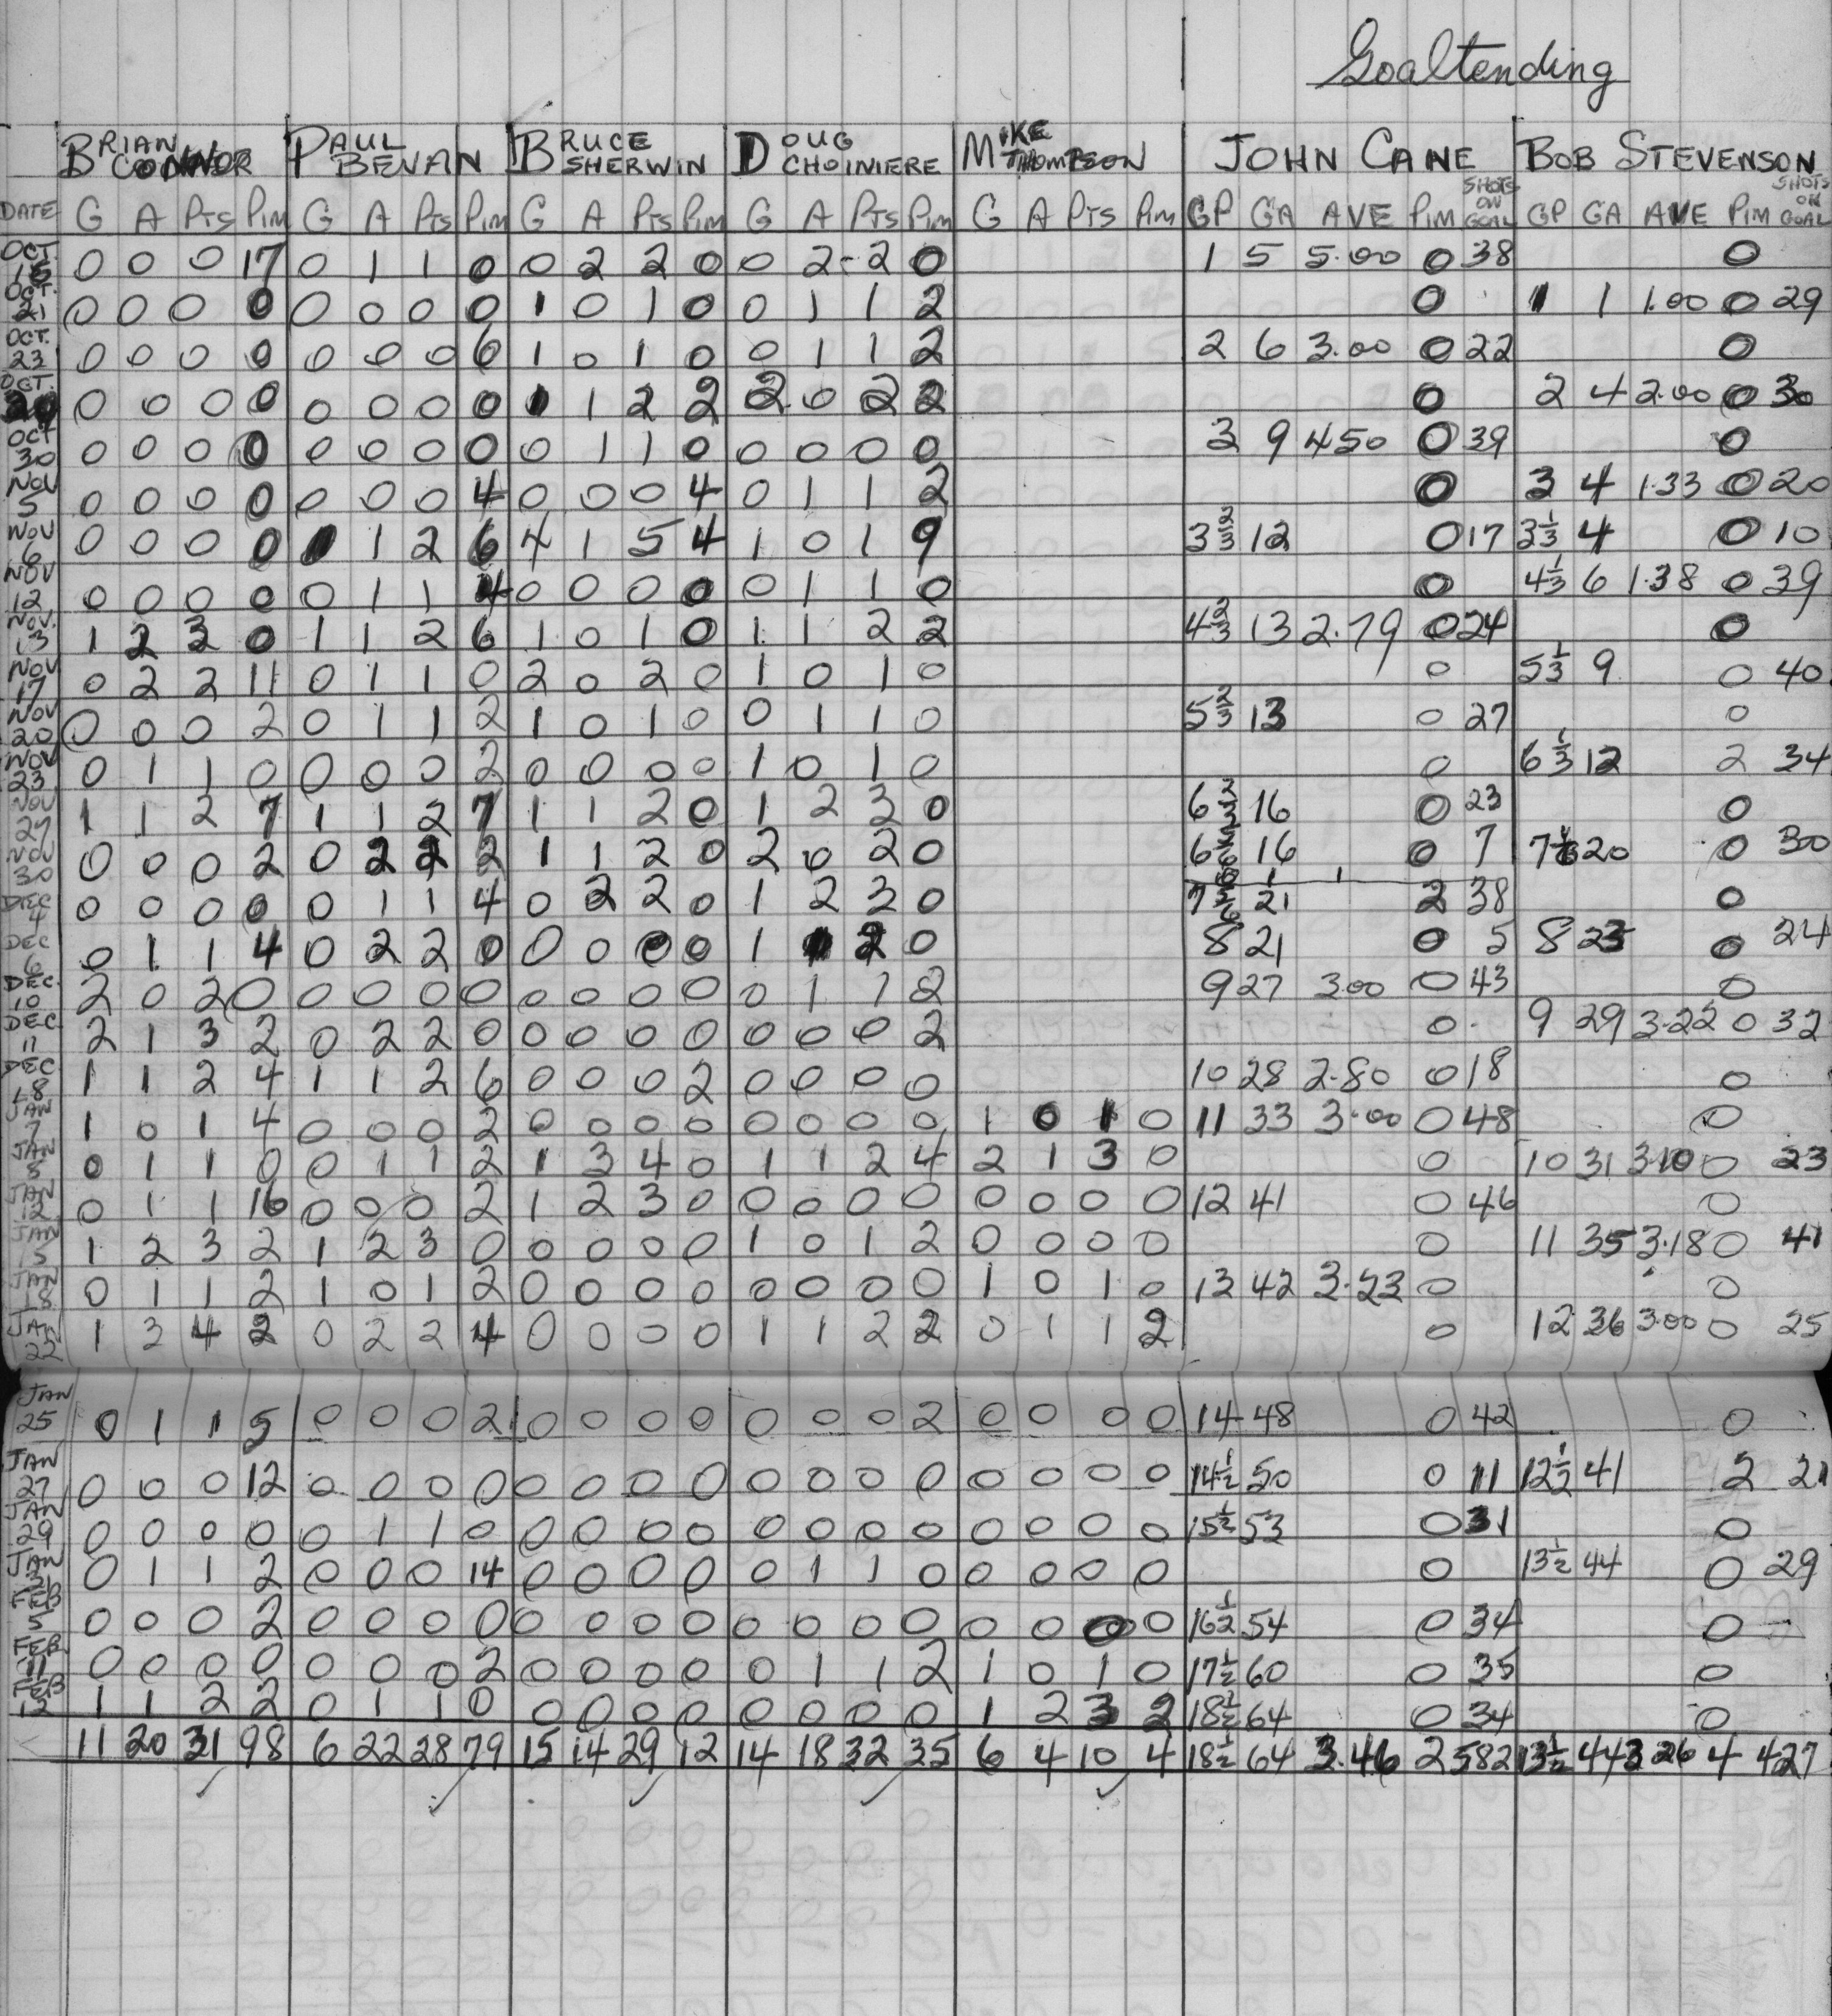 Goaltending
BRIAN CONNOR PAUL BEVAN BRUCE SHERWIN DOUG CHOINIERE MIKE THOMPSON JOHN CANE BOB STEVENSON
DATE G A PTS PIM G A PTS PIM G A PTS PIM G A PTS PIM G A PTS PIM GP GA AVE PIM SHOTS ON GOAL GP GA AVE PIM SHOTS ON GOAL
OCT. 15 0 0 0 17 0 1 1 0 0 2 2 0 0 2 2 0 1 5 5.00 0 38 0
OCT. 21 0 0 0 0 0 0 0 0 1 0 1 0 0 1 1 2 0 1 1 1.00 0 29
OCT. 23 0 0 0 0 0 0 0 6 1 0 1 0 0 1 1 2 2 6 3.00 0 22 0
OCT. 0 0 0 0 0 0 0 0 1 1 2 2 2 0 2 2 0 2 4 2.00 0 30
OCT 30 0 0 0 0 0 0 0 0 0 1 1 0 0 0 0 0 3 9 4.50 0 39 0
NOV 5 0 0 0 0 0 0 0 4 0 0 0 4 0 1 1 2 0 3 4 1.33 0 20
NOV 6 0 0 0 0 1 1 2 6 4 1 5 4 1 0 1 9 3 2/3 12 0 17 3 1/3 4 0 10
NOV 12 0 0 0 0 0 1 1 4 0 0 0 0 0 1 1 0 0 4 1/3 6 1.38 0 39
NOV. 13 1 2 3 0 1 1 2 6 1 0 1 0 1 1 2 2 4 2/3 13 2.79 0 24 0
NOV 17 0 2 2 11 0 1 1 0 2 0 2 0 1 0 1 0 0 5 1/3 9 0 40
NOV 20 0 0 0 2 0 1 1 2 1 0 1 0 0 1 1 0 5 2/3 13 0 27 0
NOV 23 0 1 1 0 0 0 0 2 0 0 0 0 1 0 1 0 0 6 1/3 12 2 34
NOV 27 1 1 2 7 1 1 2 7 1 1 2 0 1 2 3 0 6 2/3 16 0 23 0
NOV 30 0 0 0 2 0 2 2 2 1 1 2 0 2 0 2 0 6 16 0 7 7 20 0 30
DEC 4 0 0 0 0 0 1 1 4 0 2 2 0 1 2 3 0 7 21 2 38 0
DEC 6 0 1 1 4 0 2 2 0 0 0 0 0 1 1 2 0 8 21 0 5 8 23 0 24
DEC. 10 2 0 2 0 0 0 0 0 0 0 0 0 0 1 1 2 9 27 3.00 0 43 0
DEC 11 2 1 3 2 0 2 2 0 0 0 0 0 0 0 0 2 0 9 29 3.22 0 32
DEC 18 1 1 2 4 1 1 2 6 0 0 0 2 0 0 0 0 10 28 2.80 0 18 0
JAN 7 1 0 1 4 0 0 0 2 0 0 0 0 0 0 0 0 1 0 1 0 11 33 3.00 0 48 0
JAN 8 0 1 1 0 0 1 1 2 1 3 4 0 1 1 2 4 2 1 3 0 0 10 31 3.10 0 23
JAN 12 0 1 1 16 0 0 0 2 1 2 3 0 0 0 0 0 0 0 0 0 12 41 0 46 0
JAN 15 1 2 3 2 1 2 3 0 0 0 0 0 1 0 1 2 0 0 0 0 0 11 35 3.18 0 41
JAN 18 0 1 1 2 1 0 1 2 0 0 0 0 0 0 0 0 1 0 1 0 13 42 3.23 0 0
JAN 22 1 3 4 2 0 2 2 4 0 0 0 0 1 1 2 2 0 1 1 2 0 12 36 3.00 0 25
JAN 25 0 1 1 5 0 0 0 2 0 0 0 0 0 0 0 2 0 0 0 0 14 48 0 42 0
JAN 27 0 0 0 12 0 0 0 0 0 0 0 0 0 0 0 0 0 0 0 0 14 1/2 50 0 11 12 1/2 41 2 21
JAN 29 0 0 0 0 0 1 1 0 0 0 0 0 0 0 0 0 0 0 0 0 15 1/2 53 0 31 0
JAN 0 1 1 2 0 0 0 14 0 0 0 0 0 1 1 0 0 0 0 0 0 13 1/2 44 0 29
FEB 5 0 0 0 2 0 0 0 0 0 0 0 0 0 0 0 0 0 0 0 0 16 1/2 54 0 34 0
FEB 11 0 0 0 0 0 0 0 2 0 0 0 0 0 1 1 2 1 0 1 0 17 1/2 60 0 35 0
FEB 12 1 1 2 2 0 1 1 0 0 0 0 0 0 0 0 0 1 2 3 2 18 1/2 64 0 34 0
11 20 31 98 6 22 28 79 15 14 29 12 14 18 32 35 6 4 10 4 18 1/2 64 3.46 2 582 13 1/2 44 3 26 4 427